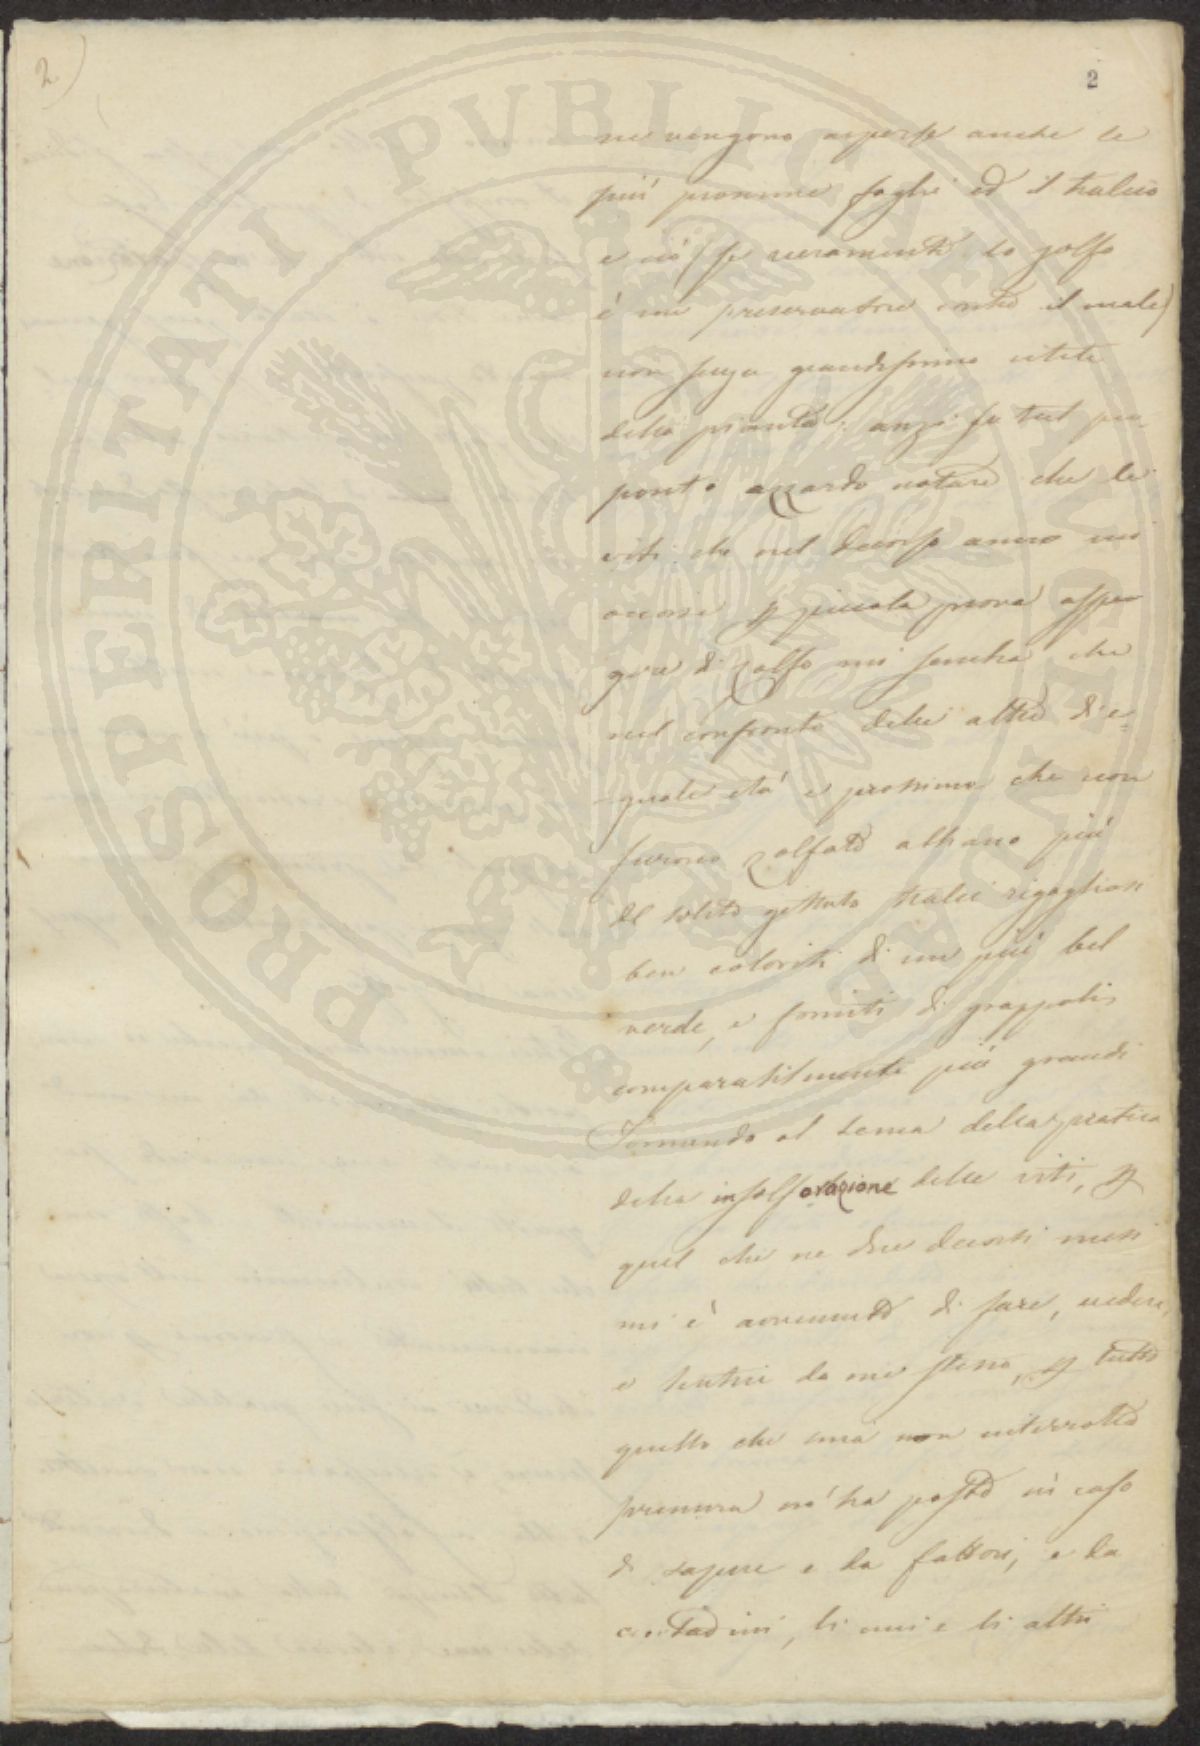 2)
2
ne vengono asperse anche le
più prossime foglie ed il tralcio
e ciò (se veramente lo zolfo
è un preservatore contro il male)
non senza grandissimo utile
della pianta: anzi su tal pro-
posito azzardo notare che le
viti che nel decorso anno mi
occorse per piccola prova asper-
gere di zolfo mi sembra che
nel confronto delle altre di e-
guale età e prossime che non
furono zolfate abbiano più
del solito gettato tralci rigogliosi
ben coloriti di un più bel
verde, e forniti di grappoli
comparabilmente più grandi
Tornando al tema della pratica
della insolforazione delle viti, per
quel che ne due decorsi mesi
mi è avvenuto di fare, vedere,
e sentire da me stesso, per tutto
quello che una non interrotta
premura m'ha posto in caso
di sapere e da fattori, e da
contadini, li uni e li altri
PROSPERITATI PVBLICAE AVGENDAE